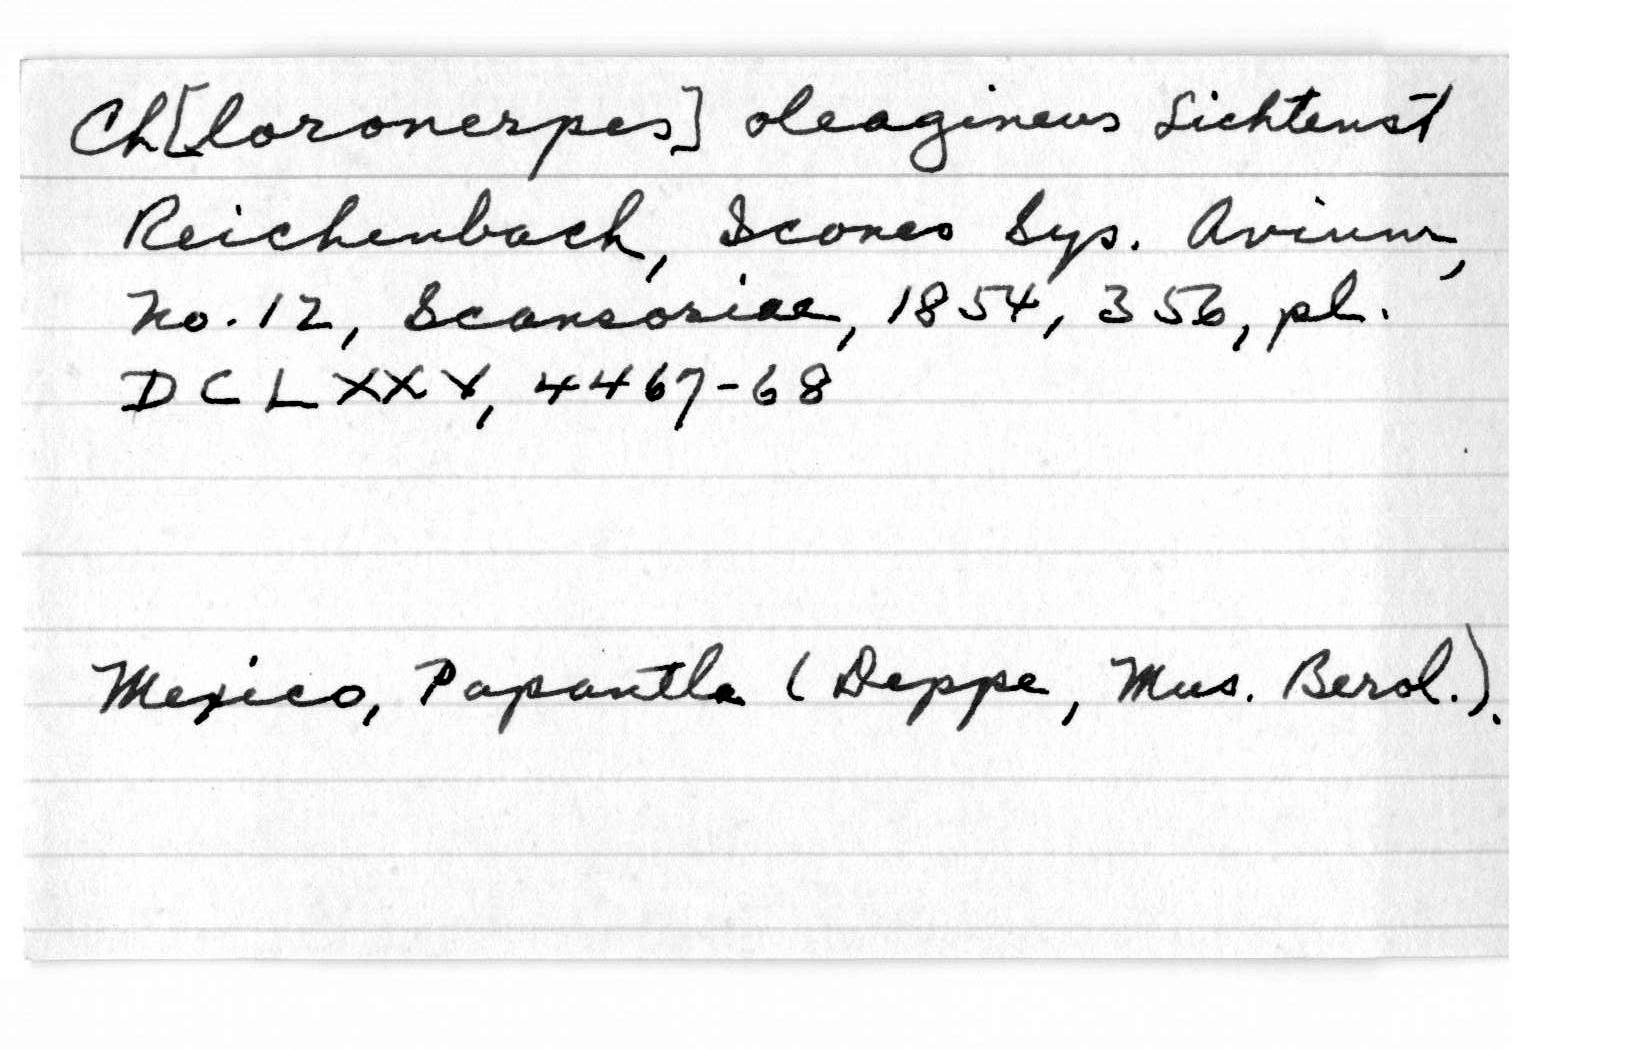 Ch[loronerpes] oleagineus Lichtenst
Reichenbach, Icones Sys. Avium,
No. 12, Scansoriae, 1854, 356, pl.
DCLXXX, 4467-68
Mexico, Papantla (Deppe, Mus. Berol.).